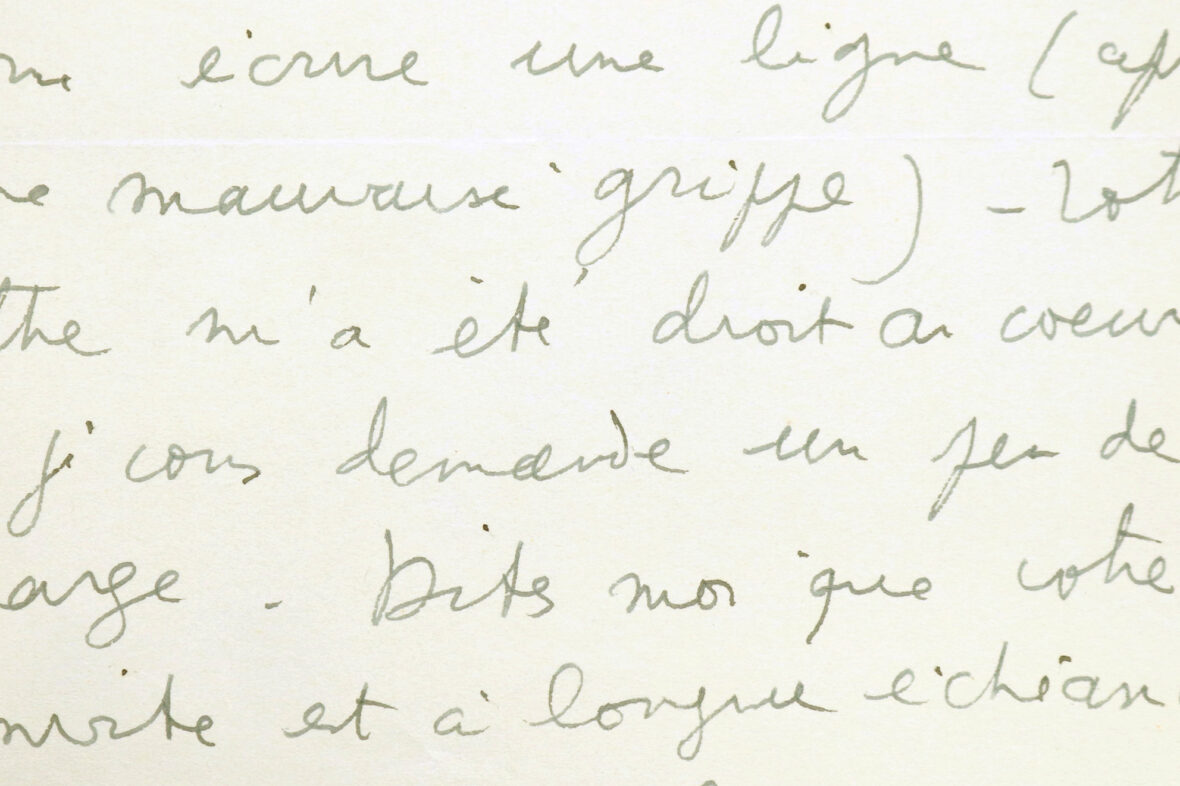 écrire une ligne (ap
ne mauvaise grippe) - Vot
the m'a été droit au coeur
je vous demande un peu de
arge - Dites moi que votre
nvite est à longue échéan